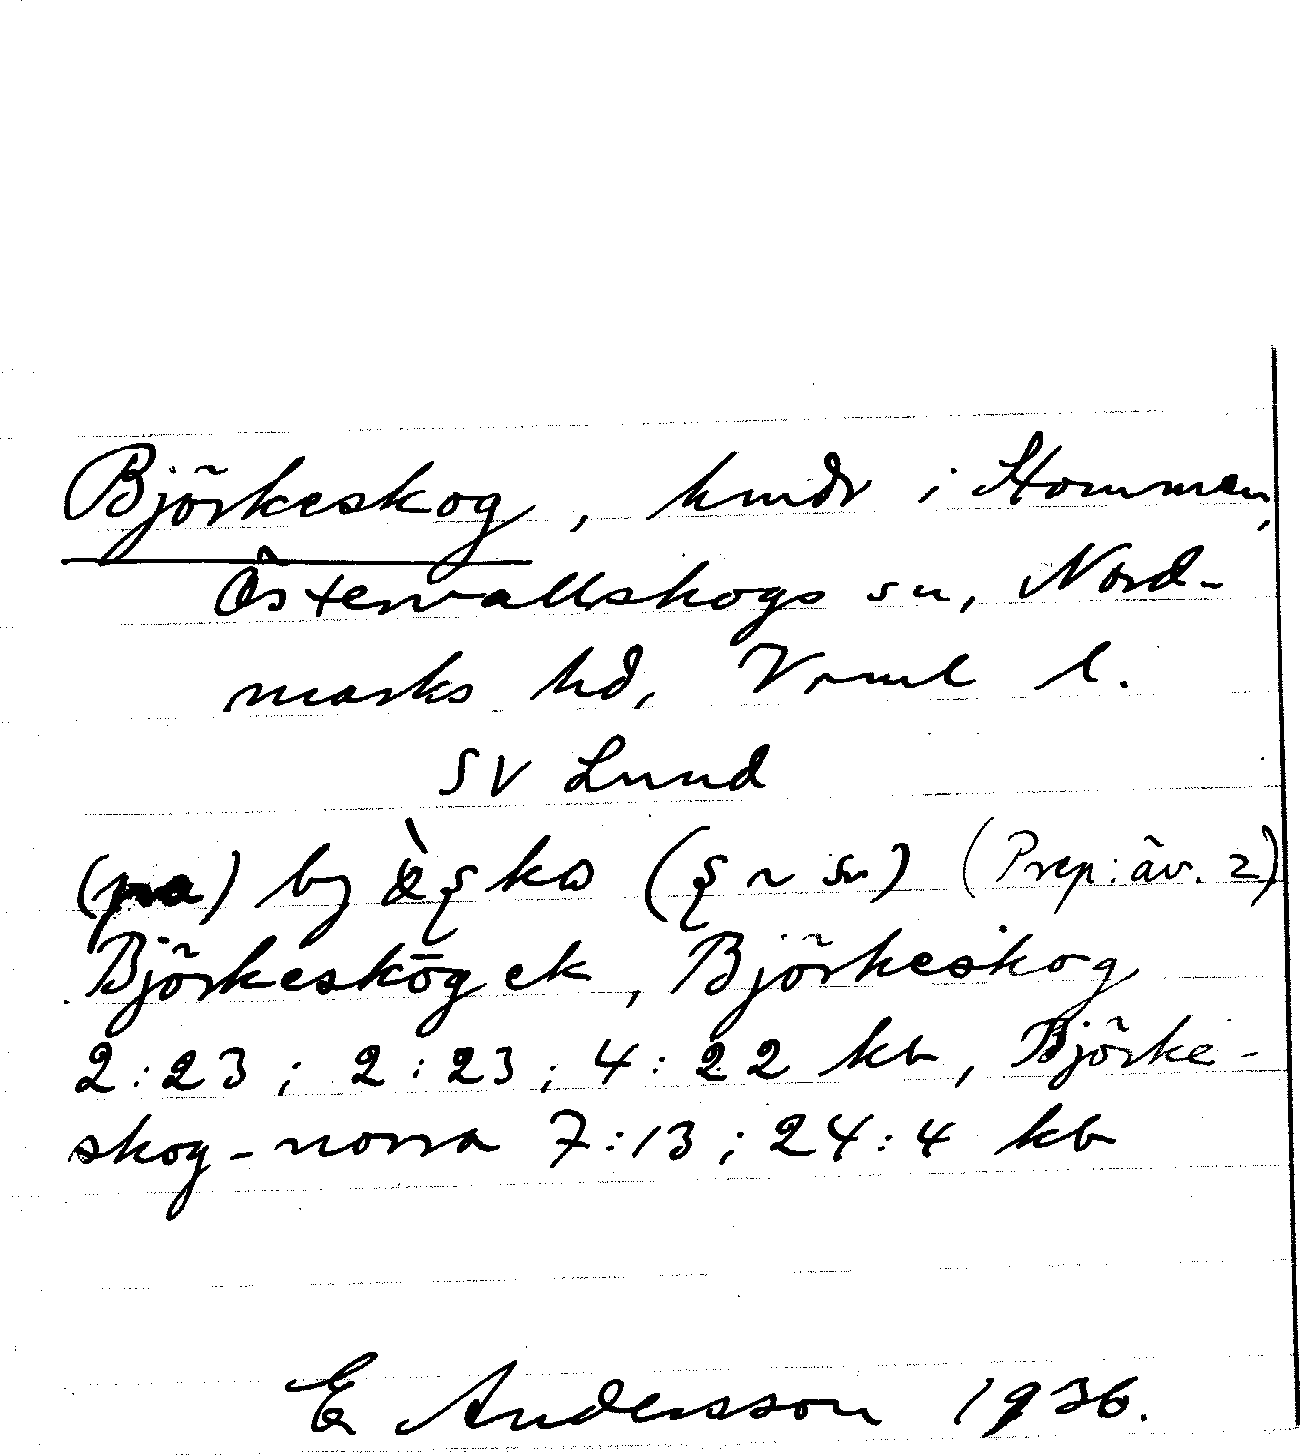 Björkeskog, hmdr i Hommen,
Östervallskogs sn, Nord-
marks hd, Vrml l.
SV Lund
(Prep: äv. 2)
Björkeskōg ek, Björkeskog
2:23; 2:23; 4:22 kb, Björke-
skog-norra 7:13; 24:4 kb
E Andersson 1936.